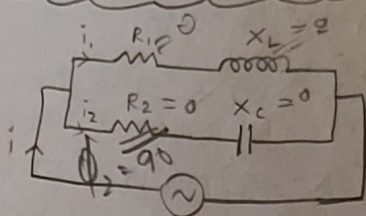 i₁ R₁ = 0 X_L = 0
i₂ R₂ = 0 X_C = 0
i ϕ₂ = 90
~